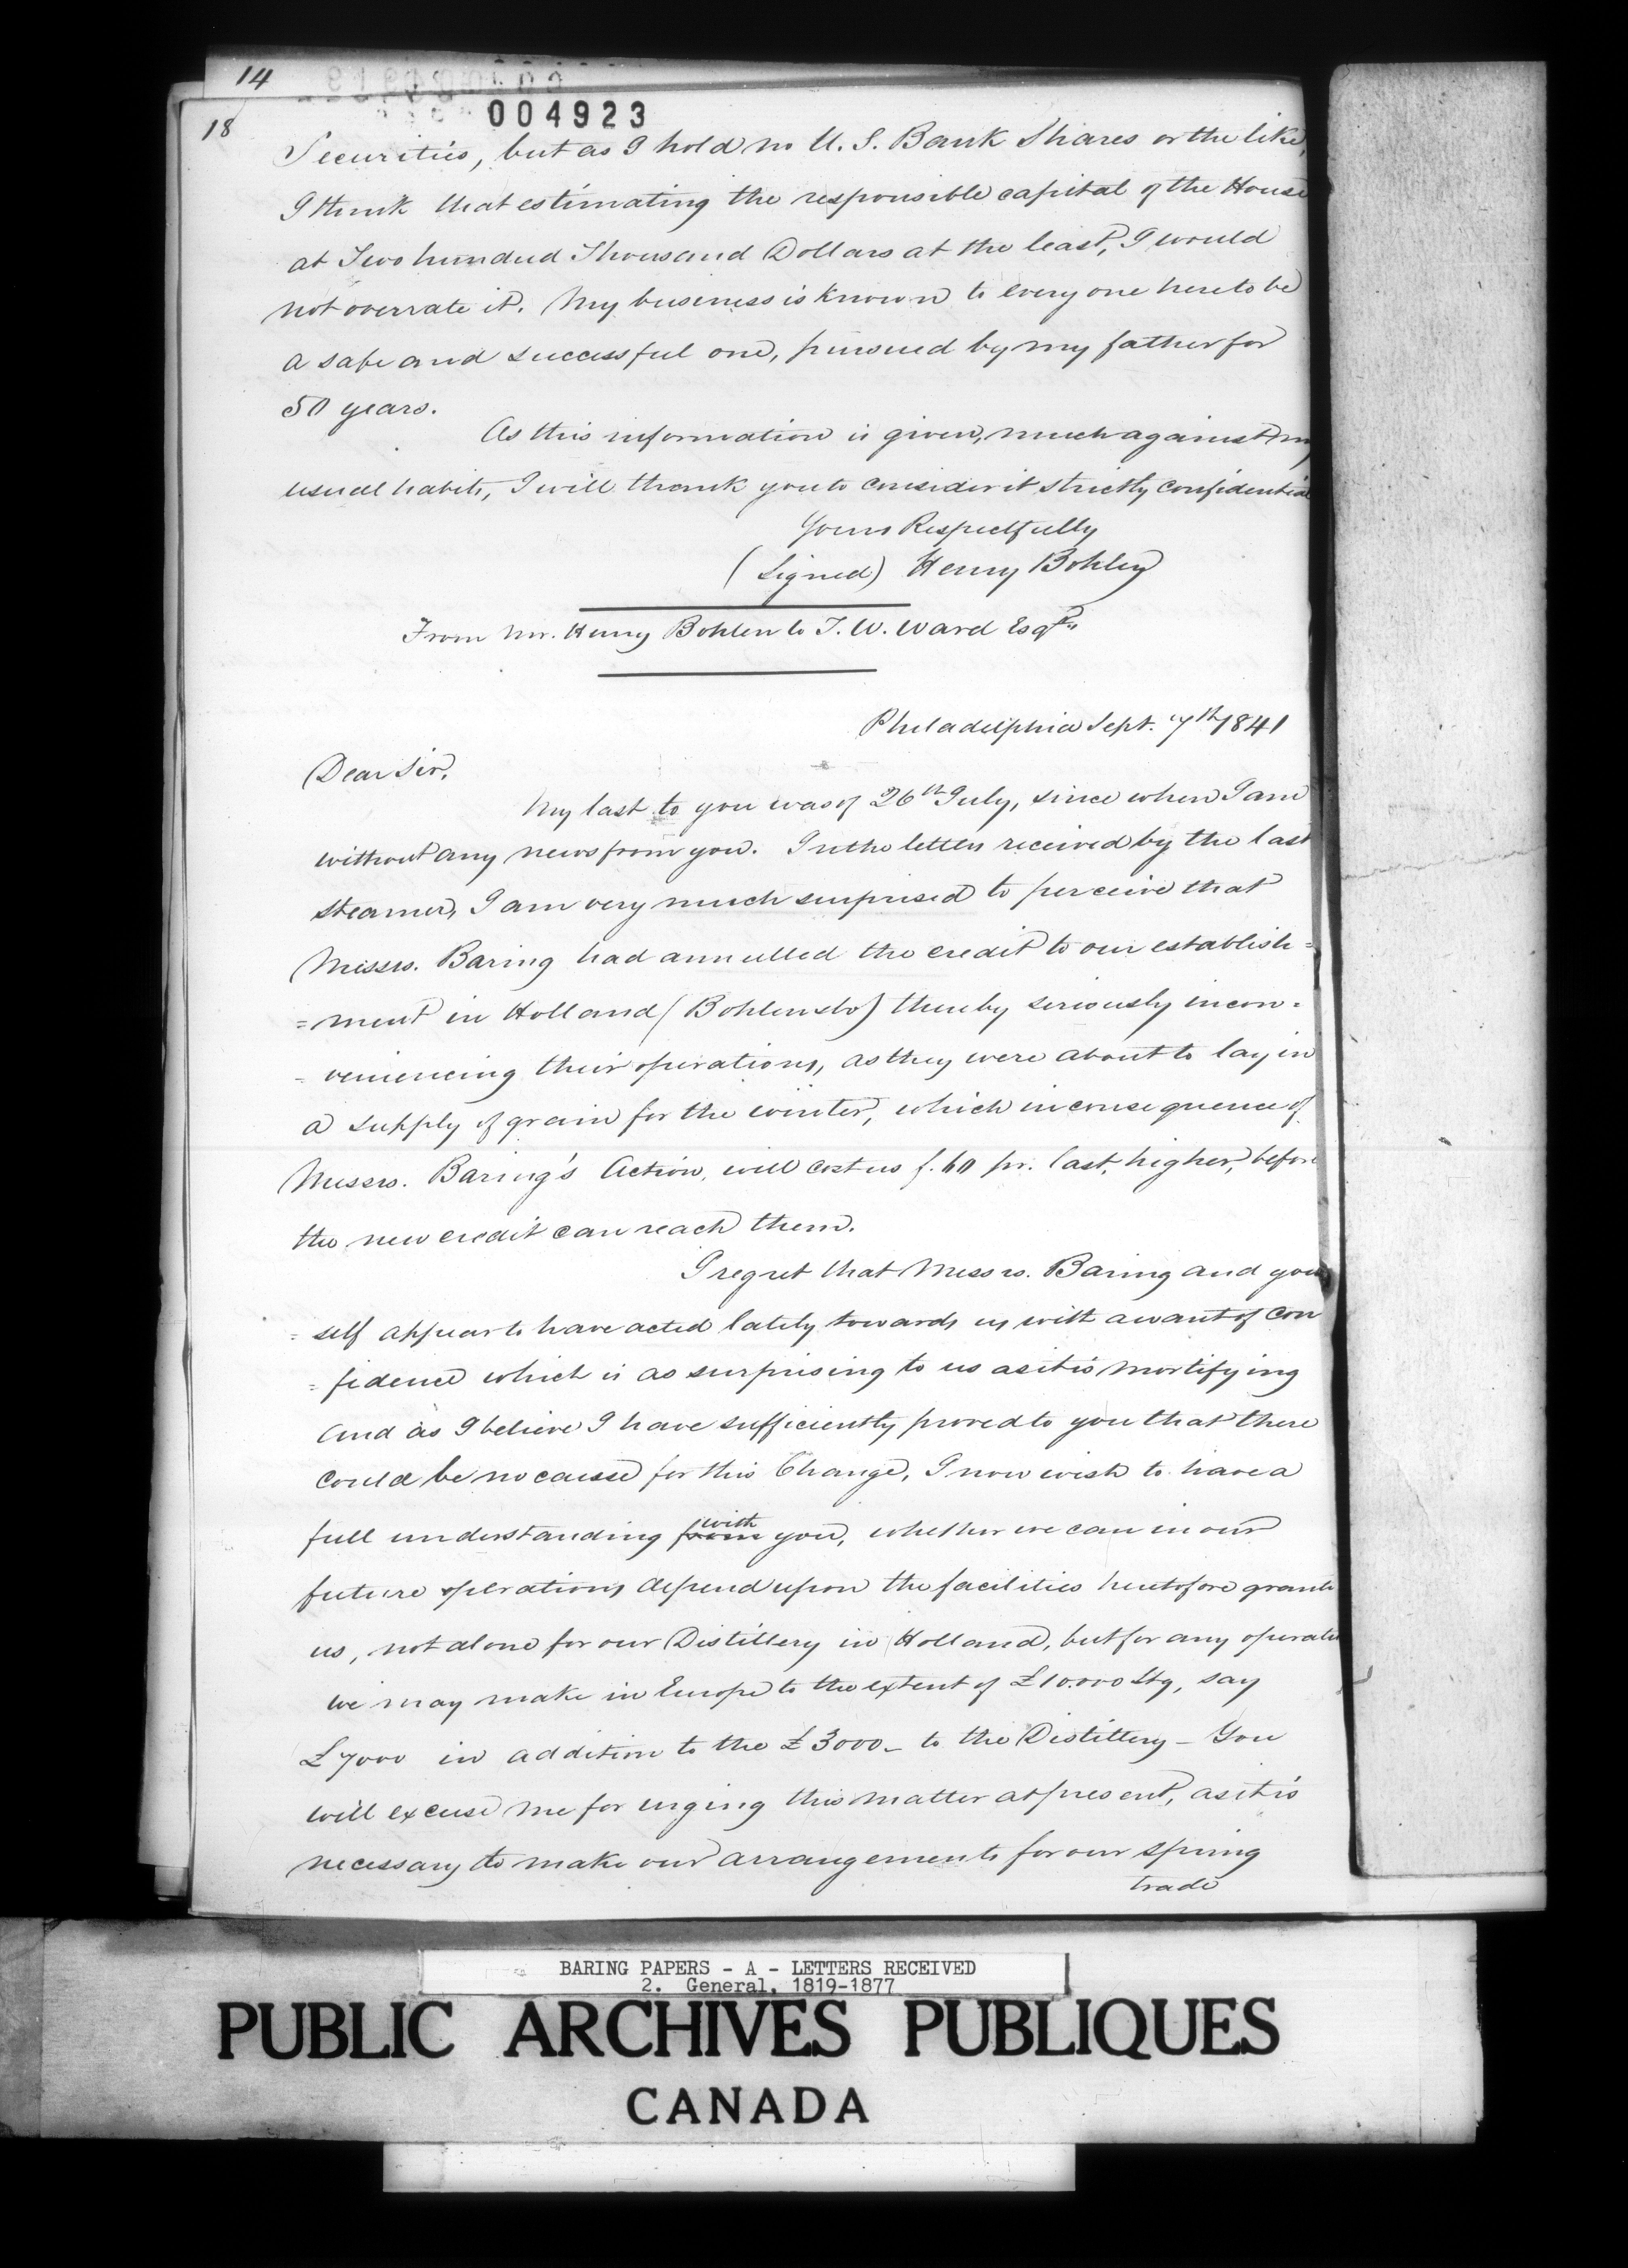 14
18
004923
Securities, but as I hold no U. S. Bank Shares or the like,
I think that estimating the responsible capital of the House
at Two hundred Thousand Dollars at the least, I would
not overrate it. My business is known to every one here to be
a safe and successful one, pursued by my father for
50 years.
As this information is given, much against my
usual habits, I will thank you to consider it strictly confidential
Yours Respectfully
(Signed) Henry Bohlen
From Mr. Henry Bohlen to T. W. Ward Esqre
Philadelphia Sept. 7th 1841
Dear Sir,
My last to you was of 26th July, since when I am
without any news from you. In the letters received by the last
steamer, I am very much surprised to perceive that
Messrs. Baring had annulled the credit to our establish=
=ment in Holland (Bohlen & Co) thereby seriously incon=
=veniencing their operations, as they were about to lay in
a supply of grain for the winter, which in consequence of
Messrs. Baring's Action, will cost us f. 60 pr. last, higher, before
the new credit can reach them.
I regret that Messrs. Baring and your
=self appear to have acted lately towards us with a want of con
=fidence which is as surprising to us as it is mortifying
and as I believe I have sufficiently proved to you that there
could be no cause for this Change, I now wish to have a
full understanding from with you, whether we can in our
future operations depend upon the facilities heretofore grante
us, not alone for our Distillery in Holland, but for any operatio
we may make in Europe to the extent of £10.000 Stg, say
£7000 in addition to the £3000_ to the Distillery _ You
will excuse me for urging this matter at present, as it is
necessary to make our arrangements for our spring
trade
BARING PAPERS - A - LETTERS RECEIVED
2. General, 1819-1877
PUBLIC ARCHIVES PUBLIQUES
CANADA